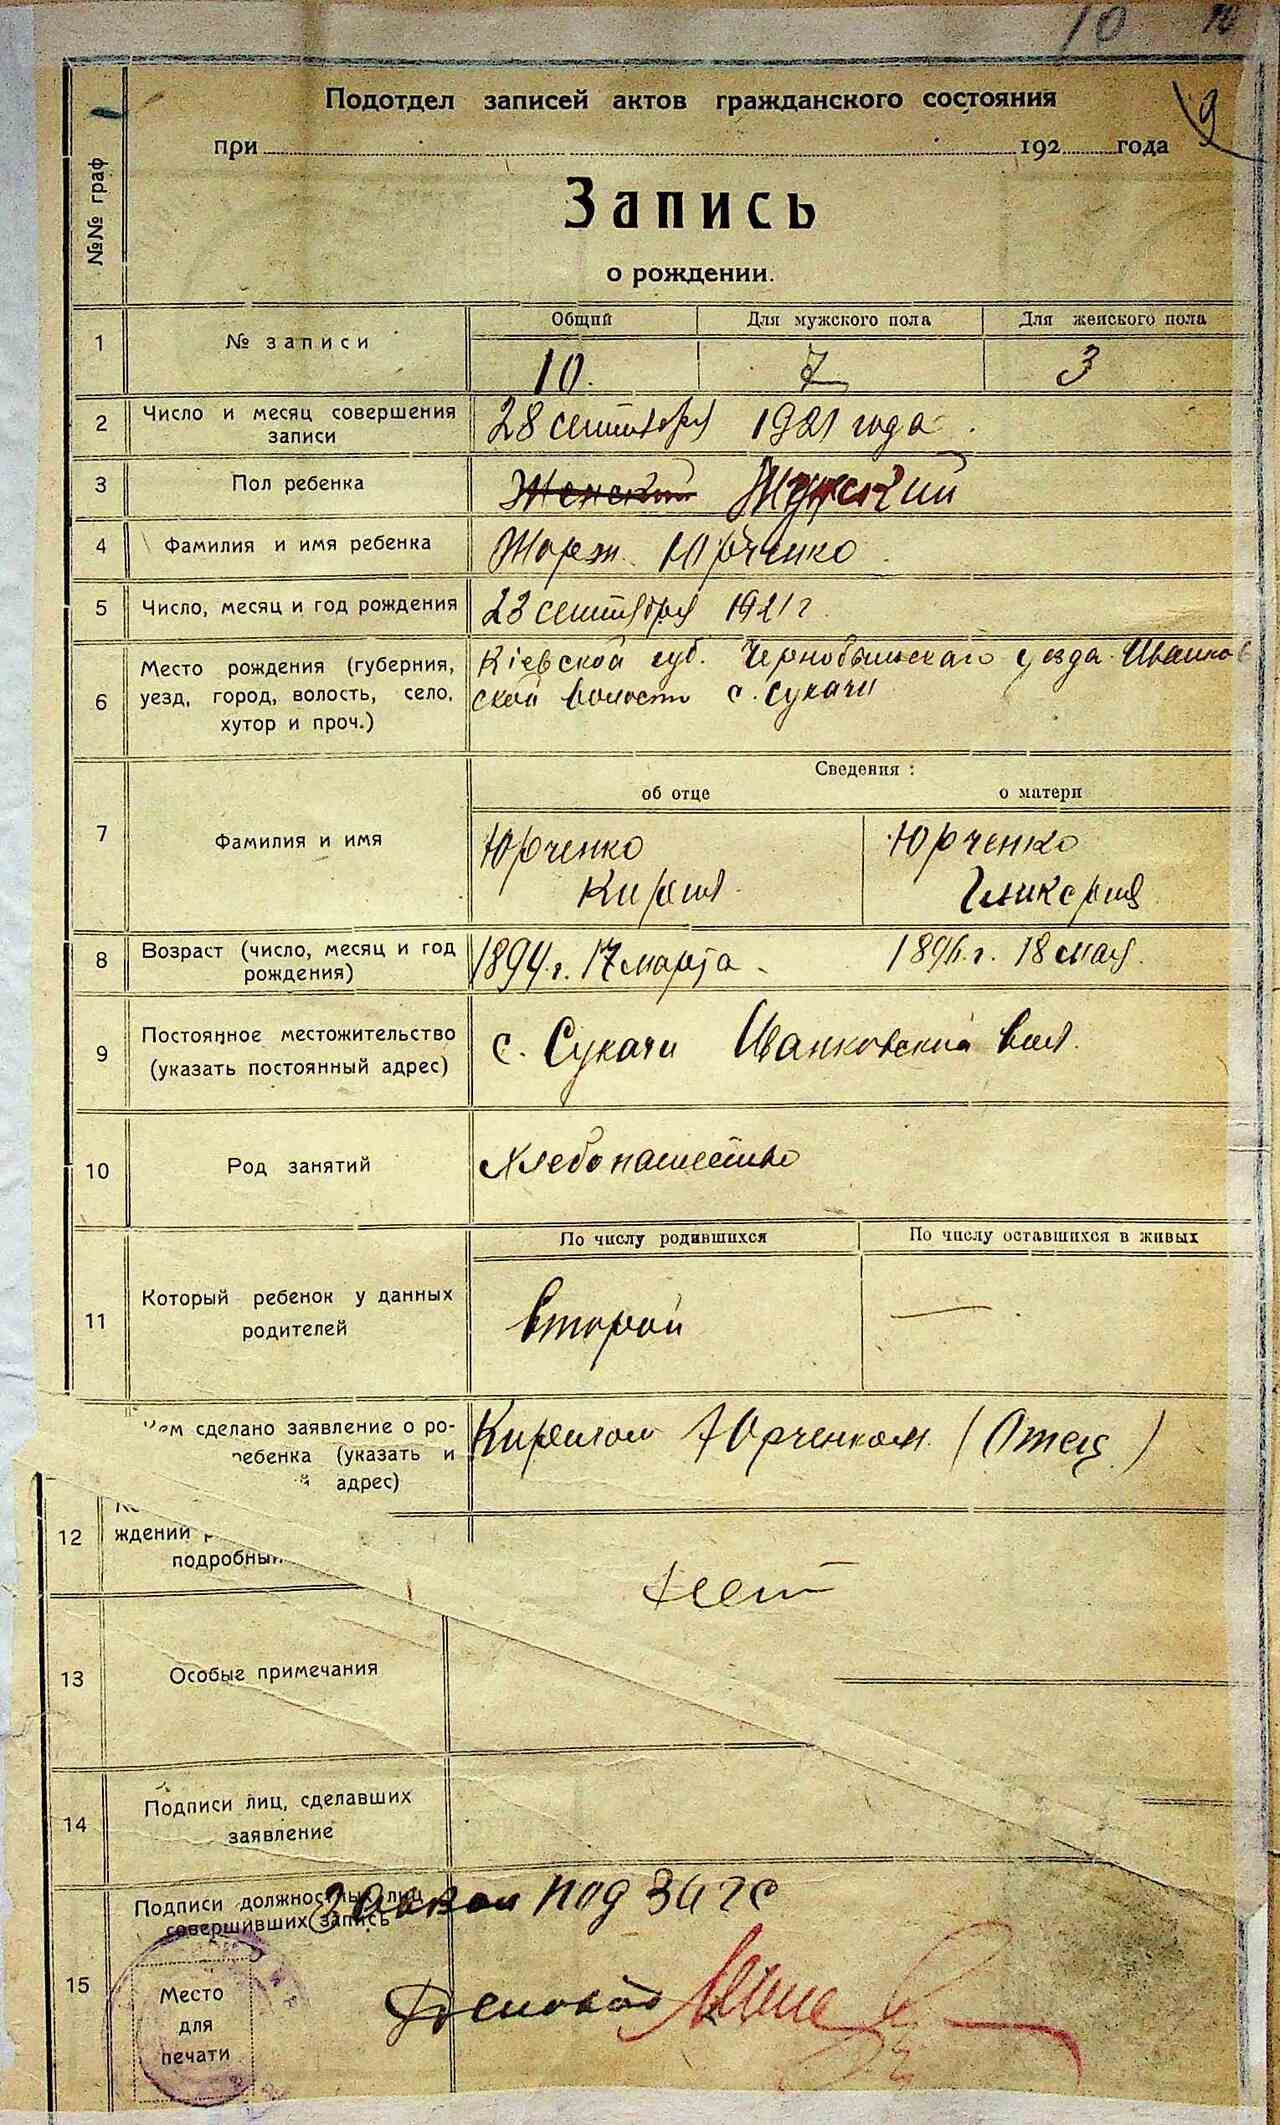 10 10
9
Подотдел записей актов гражданского состояния
при 192 года
№№ граф
Запись
о рождении.
Общий Для мужского пола Для женского пола
1 № записи 10. 7 3
2 Число и месяц совершения
записи
28 сентября 1921 года.
3 Пол ребенка Женский Мужской
4 Фамилия и имя ребенка Жорж Юрченко
5 Число, месяц и год рождения 23 сентября 1921 г
6 Место рождения (губерния,
уезд, город, волость, село,
хутор и проч.)
Кiевской губ. Чернобыльскаго уезда Иванков
ской волости с. Сукачи
Сведения:
об отце о матери
7 Фамилия и имя
Юрченко Юрченко
Кирилл Гликерия
8 Возраст (число, месяц и год
рождения)
1894 г. 17 марта. 1896 г. 18 мая.
9 Постоянное местожительство
(указать постоянный адрес)
с. Сукачи Иванковский вол.
10 Род занятий Хлебопашество
По числу родившихся По числу оставшихся в живых
11 Который ребенок у данных
родителей
второй —
ем сделано заявление о ро-
ребенка (указать и
й адрес)
Кирилом Юрченком (Отец)
12 ждений
подробный
Нет
13 Особые примечания
14 Подписи лиц, сделавших
заявление
15 Подписи должностных лиц,
совершивших запись
под загс
Место
для
печати